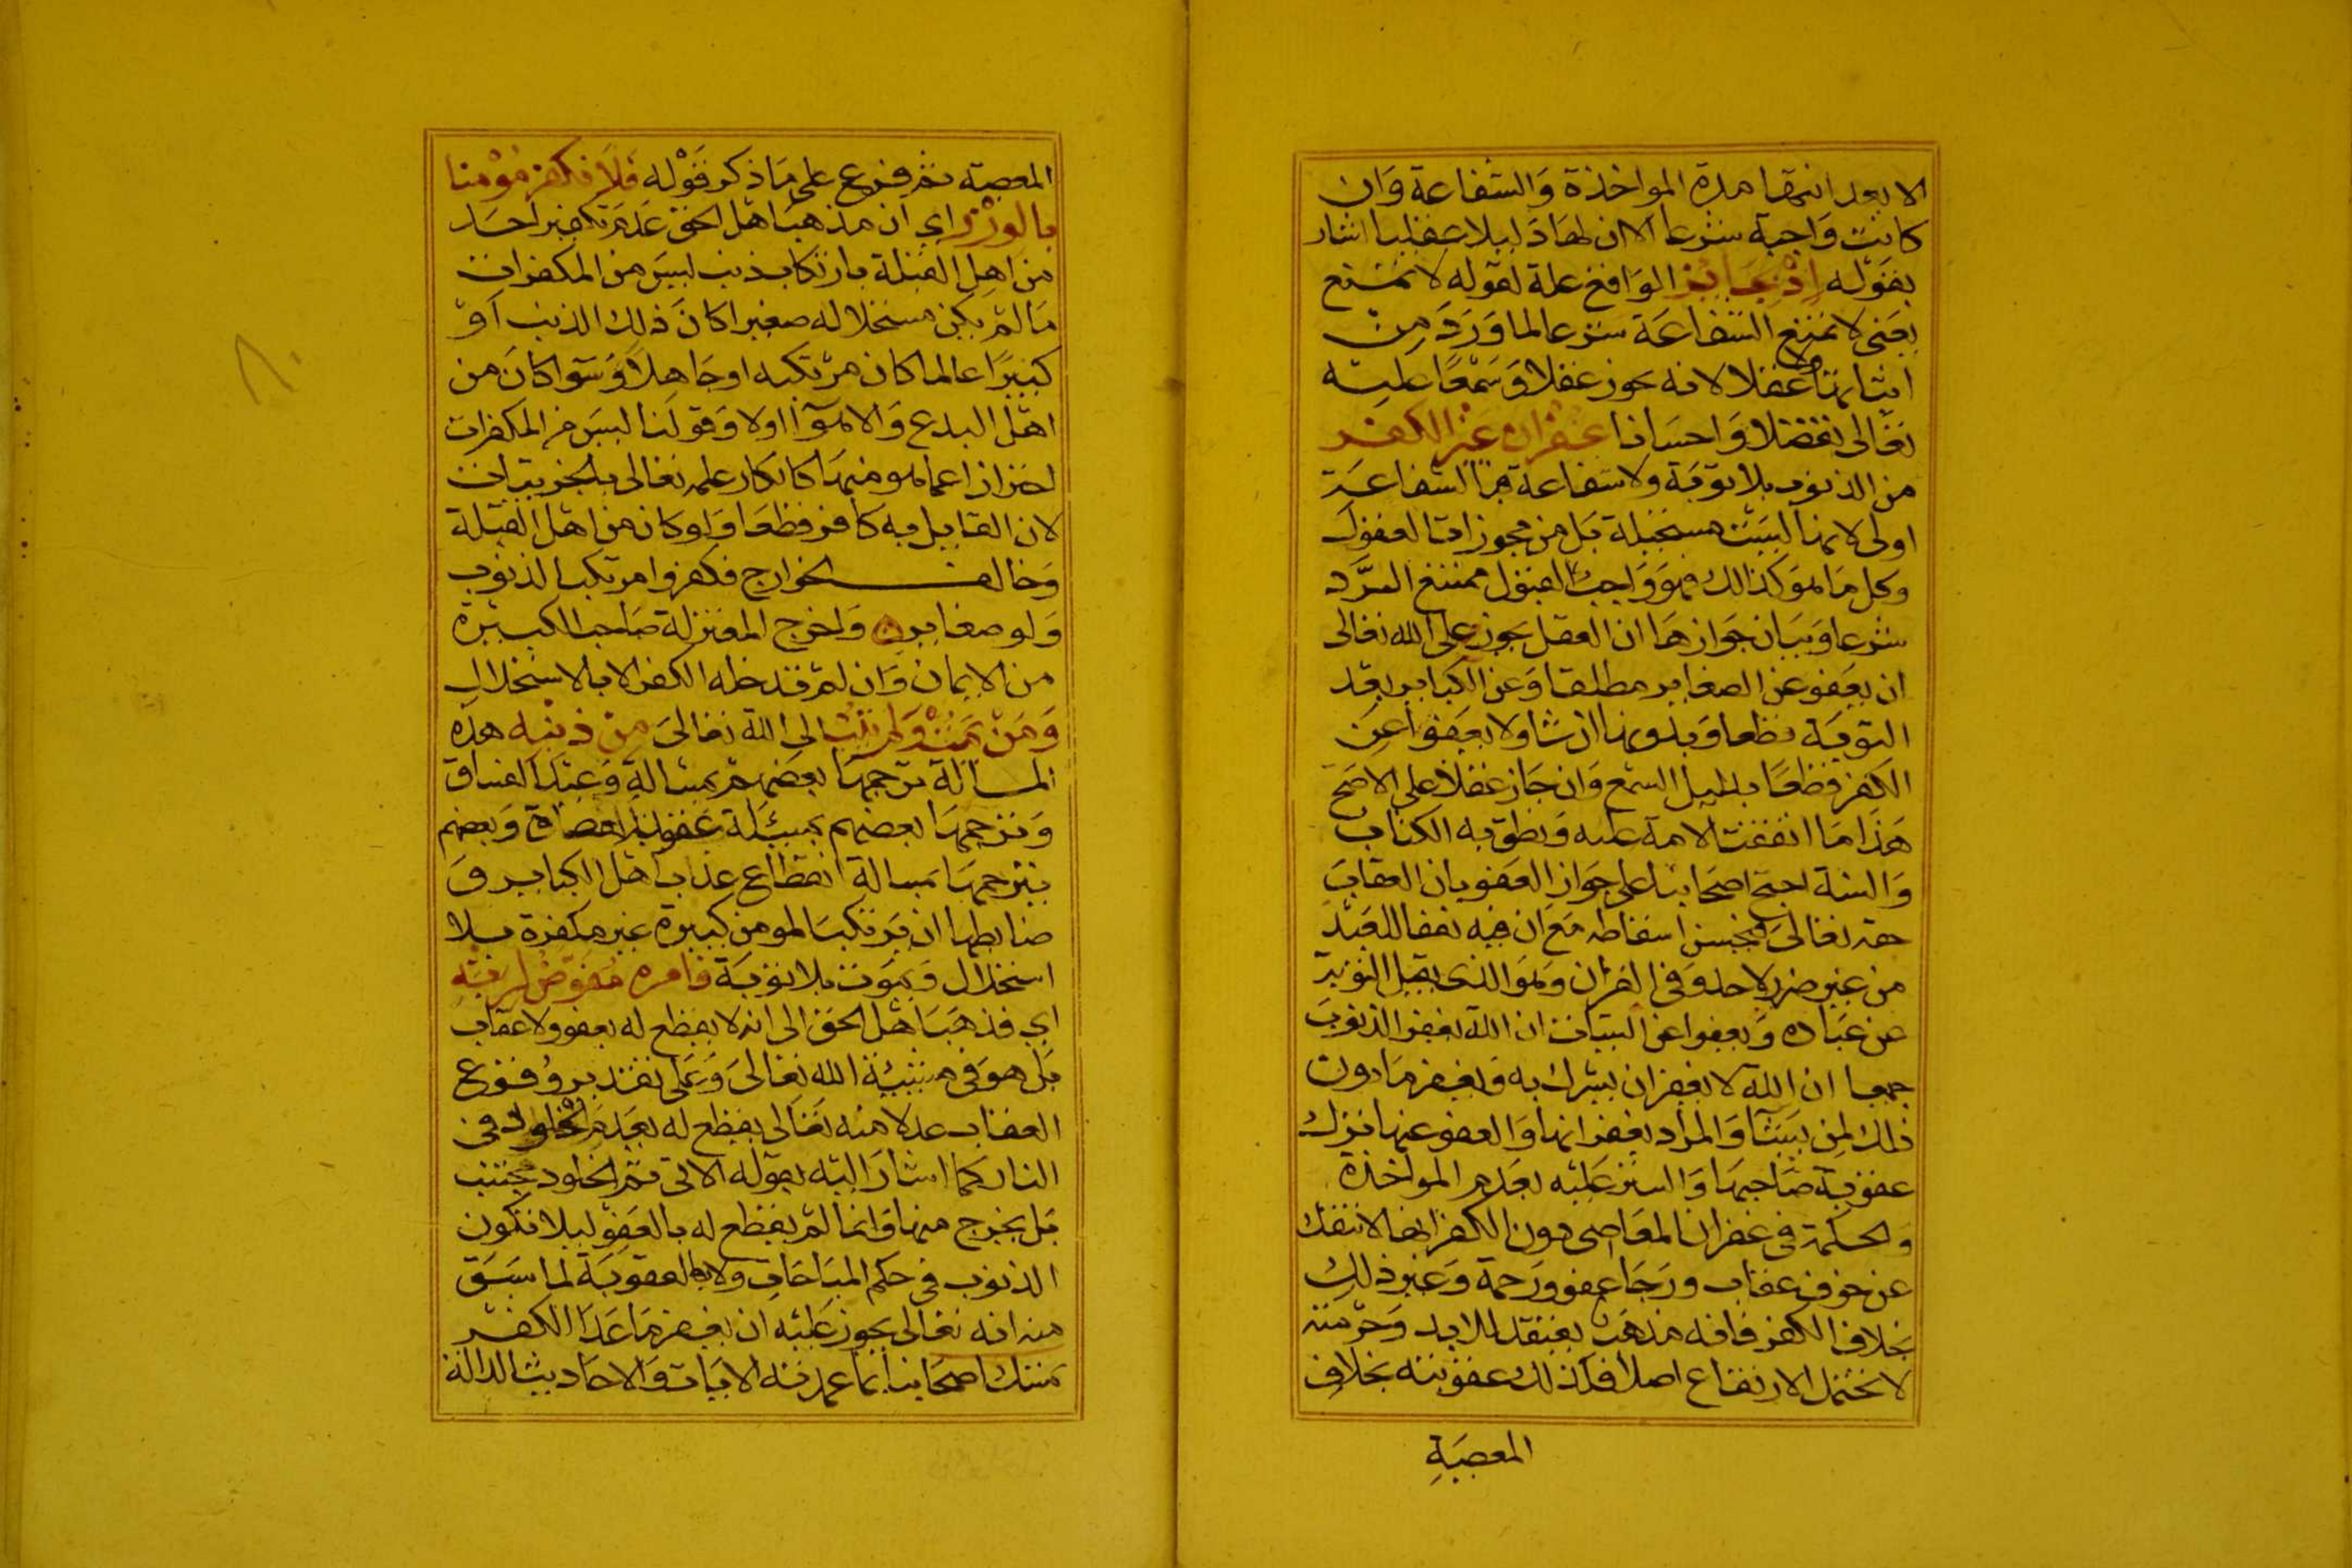 الا بعد انتها مدة المواخذة والشفاعة وان
كانت واجبة شرعا الا ان لها دليلا عقليا اشار
بقوله اذ جايز الواقع علة لقوله لا تمتنع
يعني لا تمتنع الشفاعة شرعا لما ورد من
اثباتها ولا عقلا لانه يجوز عقلا وسمعا عليه
تعالى تفضلا واحسانا غفران غير الكفر
من الذنوب بلا توبة ولا شفاعة فبالشفاعة
اولى لانها ليست مستحيلة بل من مجوزات العقول
وكل ما هو كذالك فهو واجب القبول ممتنع الرد
شرعا وبيان جوازها ان العقل يجوز على الله تعالى
ان يعفو عن الصغاير مطلقا وعن الكباير بعد
التوبة قطعا وبدونها ان شا ولا يعفوا عن
الكفر قطعا بدليل السمع وان جاز عقلا على الاصح
هذا ما اتفقت الامة عليه ونطق به الكتاب
والسنة احتج اصحابنا على جواز العفو بان العقاب
حقه تعالى فيحسن اسقاطه مع ان فيه نفعا للعبد
من غير ضرر لاحد وفي القران وهو الذي يقبل التوبة
عن عباده ويعفوا عن السيات ان الله يغفر الذنوب
جميعا ان الله لا يغفر ان يشرك به ويغفر ما دون
ذلك لمن يشا والمراد بغفرانها والعفو عنها ترك
عقوبة صاحبها والستر عليه بعدم المواخذة
والحكمة في غفران المعاصي دون الكفر انها لا تنفك
عن خوف عقاب ورجا عفو ورحمة وغير ذلك
بخلاف الكفر فانه مذهب يعتقد للابد وحرمته
لا تحتمل الارتفاع اصلا فكذلك عقوبته بخلاف
المعصية
المعصية ثم فرع على ما ذكر قوله فلا نكفر مومنا
بالوزر اي ان مذهب اهل الحق عدم تكفير احد
من اهل القبلة بارتكاب ذنب ليس من المكفرات
ما لم يكن مستحلا له صغيرا كان ذلك الذنب او
كبيرا عالما كان مرتكبه او جاهلا وسوا كان من
اهل البدع والاهوا اولا وقولنا ليس من المكفرات
احتراز اعما هو منها كانكار علمه تعالى بالجزييات
لان القايل به كافر قطعا ولو كان من اهل القبلة
وخالف الخوارج فكفروا مرتكب الذنوب
ولو صغاير واخرج المعتزلة صاحب الكبيرة
من الايمان وان لم تدخله الكفر الا بالاستحلال
ومن يمت ولم يتب الى الله تعالى من ذنبه هذه
المسالة ترجمها بعضهم بمسالة وعيد الفساق
وترجمها بعضهم بمسيلة عقوبة العصاة وبعضهم
يترجمها بمسالة انقطاع عذاب اهل الكباير و
ضابطها ان يرتكب المومن كبيرة غير مكفرة بلا
استحلال ويموت بلا توبة فامره مفوض لربه
اي فذهب اهل الحق الى انه لا يقطع له بعفو ولا عقاب
بل هو في مشيئة الله تعالى وعلى تقدير وقوع
العقاب عدلا منه تعالى يقطع له بعدم الخلود في
النار كما اشار اليه بقوله الاتي ثم الخلود مجتنب
بل يخرج منها وانما لم يقطع له بالعفو ليلا تكون
الذنوب في حكم المباحات ولا بالعقوبة لما سبق
من انه تعالى يجوز عليه ان يغفر ما عدا الكفر
تمسك اصحابنا بما عمدته الايات والاحاديث الدالة